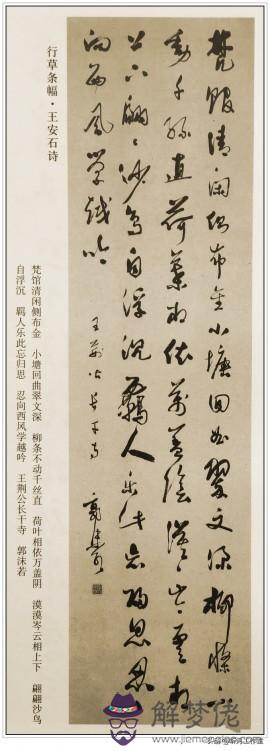 梵館清閑側布金小塘回曲翠文深柳條不
動千絲直荷葉相依萬蓋陰漠漠岑雲相
上下翩翩沙鳥自浮沉羈人樂此忘歸思忍
向西風學越吟 王荊公長干寺 郭沫若
行草条幅·王安石诗
梵馆清闲侧布金 小塘回曲翠文深 柳条不动千丝直 荷叶相依万盖阴 漠漠岑云相上下 翩翩沙鸟
自浮沉 羁人乐此忘归思 忍向西风学越吟 王荆公长干寺 郭沫若
解梦佬